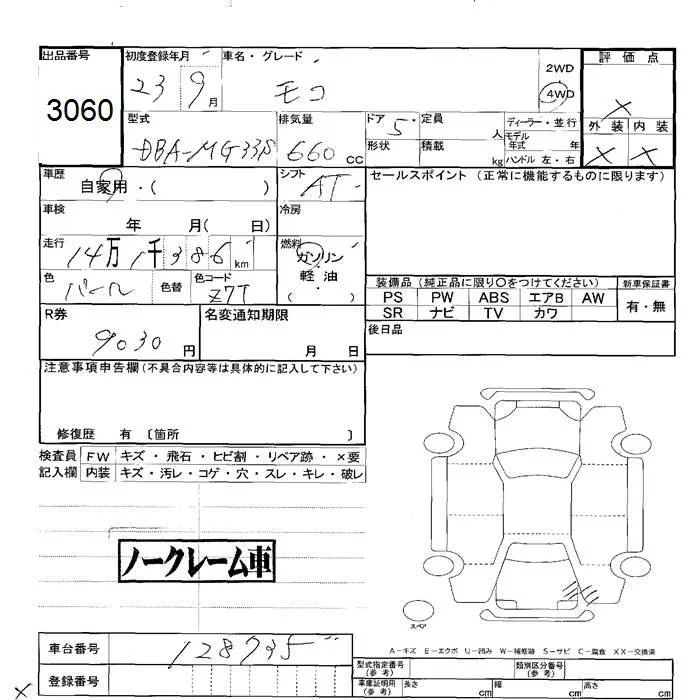 出品番号 初度登録年月 車名・グレード 評価点
3060 23 9月 モコ 2WD 4WD ×
型式 排気量 ドア 定員 ディーラー・並行 外装 内装
DBA-MG33S 660 cc 5 人 モデル年式 年 × ×
形状 積載 kg ハンドル 左・右
車歴 シフト セールスポイント（正常に機能するものに限ります）
自家用・( ) AT
車検 冷房
年 月( 日)
走行 燃料
14万1千386km ガソリン
軽油
色 色替 色コード ( )
パール Z7T
装備品（純正品に限り〇をつけてください） 新車保証書
PS PW ABS エアB AW 有・無
SR ナビ TV カワ
R券 名変通知期限 後日品
9030円 月 日
注意事項申告欄（不具合内容等は具体的に記入して下さい）
修復歴 有 〔箇所 〕
検査員 FW キズ・飛石・ヒビ割・リペア跡・×要
記入欄 内装 キズ・汚レ・コゲ・穴・スレ・キレ・破レ
ノークレーム車
スペア
A－キズ E－エクボ U－凹み W－補修跡 S－サビ C－腐食 XX－交換済
車台番号 128735
登録番号
型式指定番号（参考） 類別区分番号（参考）
車庫証明用（参考） 長さ cm 幅 cm 高さ cm
×